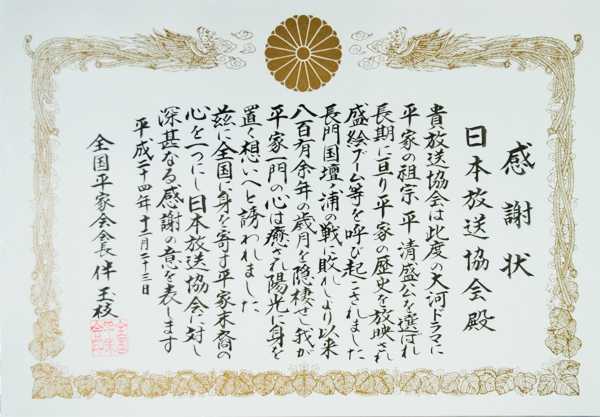 感謝状
日本放送協会殿
貴放送協会は此度の大河ドラマに
平家の祖宗 平 清盛公を選ばれ
長期に亘り平家の歴史を放映され
盛絵ブーム等を呼び起こされました
長門国壇ノ浦の戦に敗れしより以来
八百有余年の歳月を隠棲せし我が
平家一門の心は癒され陽光に身を
置く想いへと誘われました
茲に全国に身を寄す平家末裔の
心を一つにし日本放送協会に対し
深甚なる感謝の意を表します
平成二十四年十二月二十三日
全国平家会会長 伴 玉枝